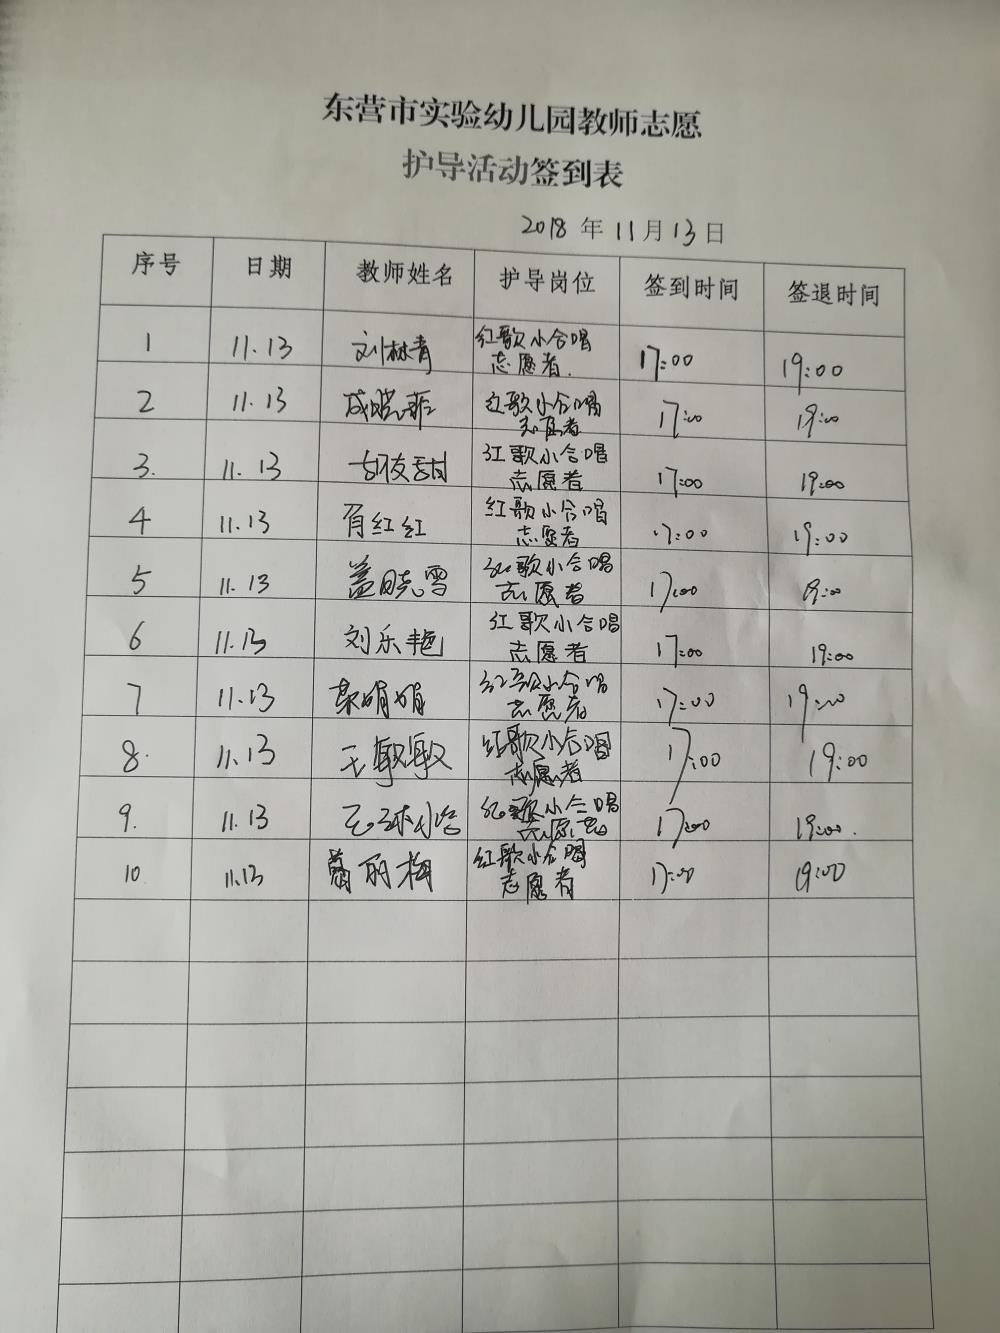 东营市实验幼儿园教师志愿
护导活动签到表
2018 年 11 月 13 日
序号 日期 教师姓名 护导岗位 签到时间 签退时间
1 11.13 刘林青 红歌小合唱志愿者. 17:00 19:00
2 11.13 成晓菲 红歌小合唱志愿者 17:00 19:00
3. 11.13 胡友甜 红歌小合唱志愿者 17:00 19:00
4 11.13 红红 红歌小合唱志愿者 17:00 19:00
5 11.13 盖晓雪 红歌小合唱志愿者 17:00 19:00
6 11.13 刘乐艳 红歌小合唱志愿者 17:00 19:00
7 11.13 娟娟 红歌小合唱志愿者 17:00 19:00
8. 11.13 王敏敏 红歌小合唱志愿者 17:00 19:00
9. 11.13 红歌小合唱志愿者 17:00 19:00.
10 11.13 丽梅 红歌小合唱志愿者 17:00 19:00